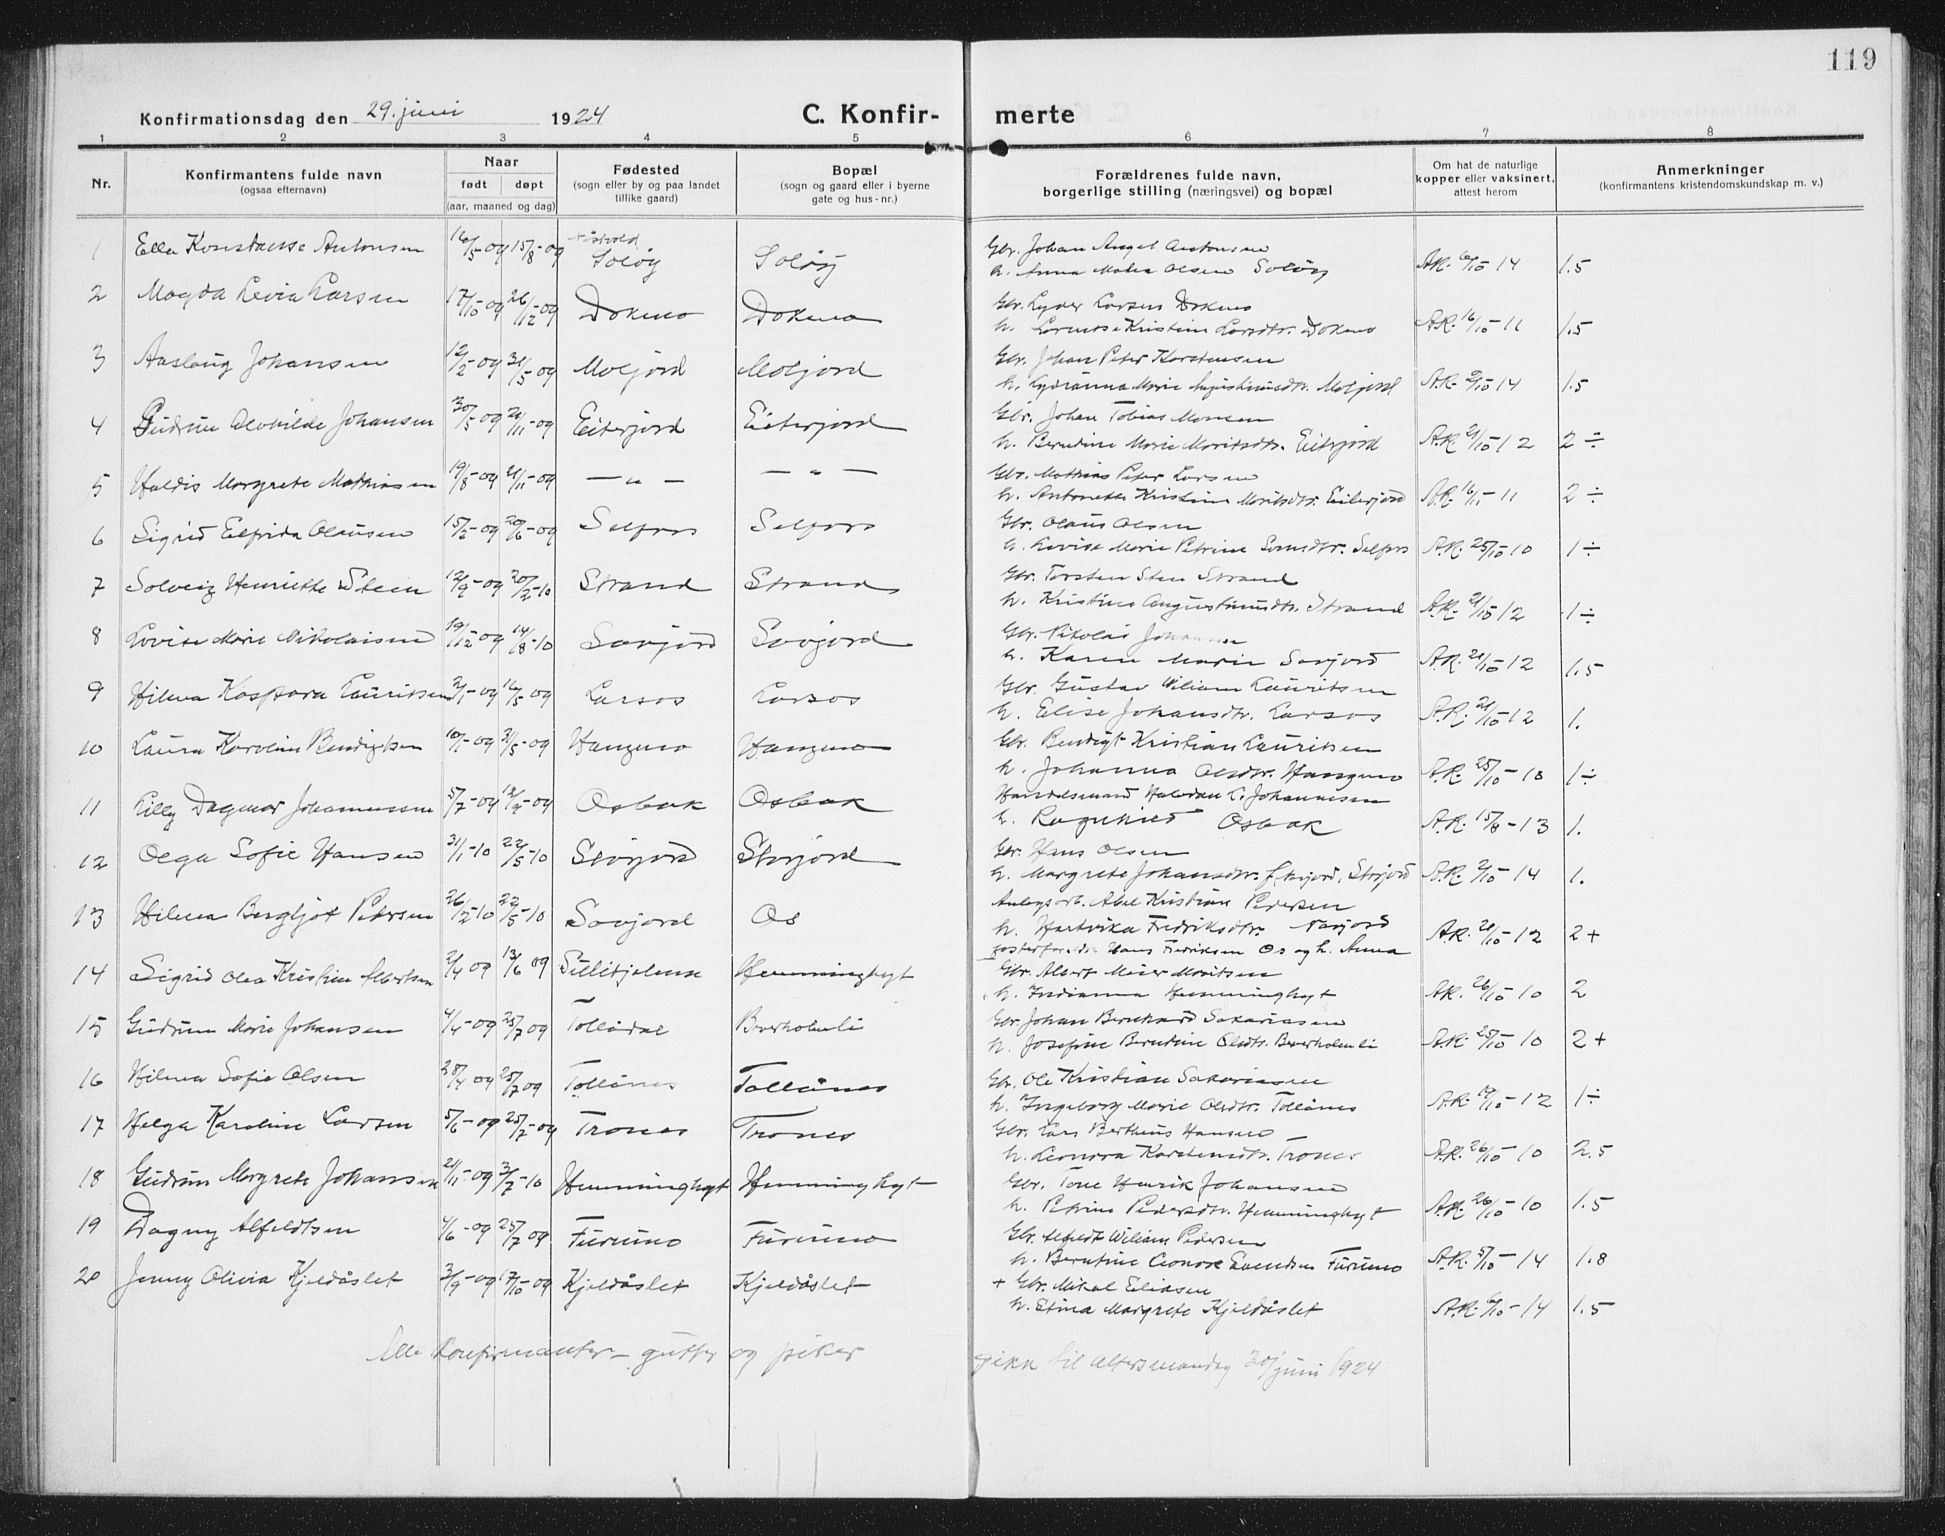 119
Konfirmationsdag den 29. juni 1924 C. Konfirmerte
1 2 3 4 5 6 7 8
Nr. Konfirmantens fulde navn (ogsaa efternavn) Naar født døpt (aar, maaned og dag) Fødested (sogn eller by og paa landet tillike gaard) Bopæl (sogn og gaard eller i byerne gate og hus-nr.) Forældrenes fulde navn, borgerlige stilling (næringsvei) og bopæl Om hat de naturlige kopper eller vaksinert, attest herom Anmerkninger (konfirmantens kristendomskundskap m. v.)
1 Ella Konstanse Antonsen 16/5-09 15/8-09 Soløy Soløy Gbr. Johan Angel Antonsen
h. Anna Olsen Soløy A.R. 14 1.5
2 Magda Levia Larsen 17/10-09 26/12-09 Dokmo Dokmo Gbr. Lyder Larsen Dokmo
h. Kristine Larsdtr. Dokmo A.R. 16/10-11 1.5
3 Aaslaug Johansen 12/2-09 31/5-09 Moljord Moljord Gbr. Johan Peter Karstensen
h. Lydianna Marie Moljord A.R. 14 1.5
4 Gudrun Johansen 30/5-09 21/11-09 Eiterjord Eiterjord Gbr. Johan Tobias Monsen
h. Berntine Marie Moritsdtr. Eiterjord A.R. 21/10-12 2 ÷
5 Haldis Margrete Mathiasen 19/8-09 21/11-09 — " — — " — Gbr. Mathias Peter Larsen
h. Antonette Kristine Moritsdtr. Eiterjord A.R. 16/11-11 2 ÷
6 Sigrid Elfrida Olausen 15/2-09 20/6-09 Selfors Selfors Gbr. Olaus Olsen
h. Lovise Marie Petrine Selfors A.R. 25/10-10 1 ÷
7 Solveig Henriette Steen 12/9-09 20/2-10 Strand Strand Gbr. Torsten Sten Strand
h. Kristine Strand A.R. 21/10-12 1 ÷
8 Lovise Marie Nikolaisen 19/12-09 14/8-10 Savjord Savjord Gbr. Nikolai Johansen
h. Karen Marie Savjord A.R. 21/10-12 1.5
9 Hilma Kaspara Lauritsen 2/1-09 16/5-09 Larsos Larsos Gbr. Gustav Wiliam Lauritsen
h. Elise Johansdtr. Larsos A.R. 21/10-12 1.
10 Laura Karoline Bendigtsen 10/1-09 31/5-09 Hangmo Hangmo Gbr. Bendigt Kristian Lauritsen
h. Johanna Olsdtr. Hangmo A.R. 25/10-10 1 ÷
11 Lilly Dagmar Johannessen 5/7-09 12/9-09 Osbak Osbak Handelsmand Halvdan L. Johannesen
h. Osbak A.R. 15/8-13 1.
12 Olga Sofie Hansen 31/1-10 22/5-10 Storjord Storjord Gbr. Hans Olsen
h. Margrete Johansdtr. Storjord A.R. 14 1.
13 Hilma Bergljot Pedersen 26/2-10 22/5-10 Savjord Os Anlegsarb. Abel Kristian Pedersen
h. Hartvika Fredriksdtr. Savjord A.R. 21/10-12 2 +
Fosterforeldre Hans Fredriksen Os og h. Anna
14 Sigrid Olea Kristine Albertsen 2/4 09 13/6 09 Sulitjelma Hemminghyt Gbr. Albert Meier Moritsen
h. Indianna Hemminghyt A.R. 26/10-10 2
15 Gudrun Marie Johansen 4/4-09 25/7 09 Tollådal Beverholmli Gbr. Johan Bernhard Sakariasen
h. Josefine Berntine Olsdtr. Beverholmli A.R. 25/10-10 2 +
16 Hilma Sofie Olsen 28/4 09 25/7 09 Tollånes Tollånes Gbr. Ole Kristian Sakariasen
h. Ingeborg Marie Olsdtr. Tollånes A.R. 12 1 ÷
17 Helga Karoline Larsen 5/6-09 25/7-09 Trones Trones Gbr. Lars Bertheus Hansen
h. Leonora Karstensdtr. Trones A.R. 26/10-10 2.5
18 Gudrun Margrete Johansen 21/11-09 3/7-10 Hemminghyt Hemminghyt Gbr. Tone Henrik Johansen
h. Petrine Pedersdtr. Hemminghyt A.R. 26/10-10 1.5
19 Dagny Alfeldtsen 4/6-09 25/7 09 Furumo Furumo Gbr. Alfeldt Wiliam Pedersen
h. Berntine Leonore Furumo A.R. 5/10-14 1.8
20 Jenny Olivia Kjeldåslet 3/9-09 17/10-09 Kjeldåslet Kjeldåslet + Gbr. Mikal Eliasen
h. Stina Margrete Kjeldåslet A.R. 14 1.5
Alle konfirmanter – gutter og piker gikk til alters mandag 30/juni 1924